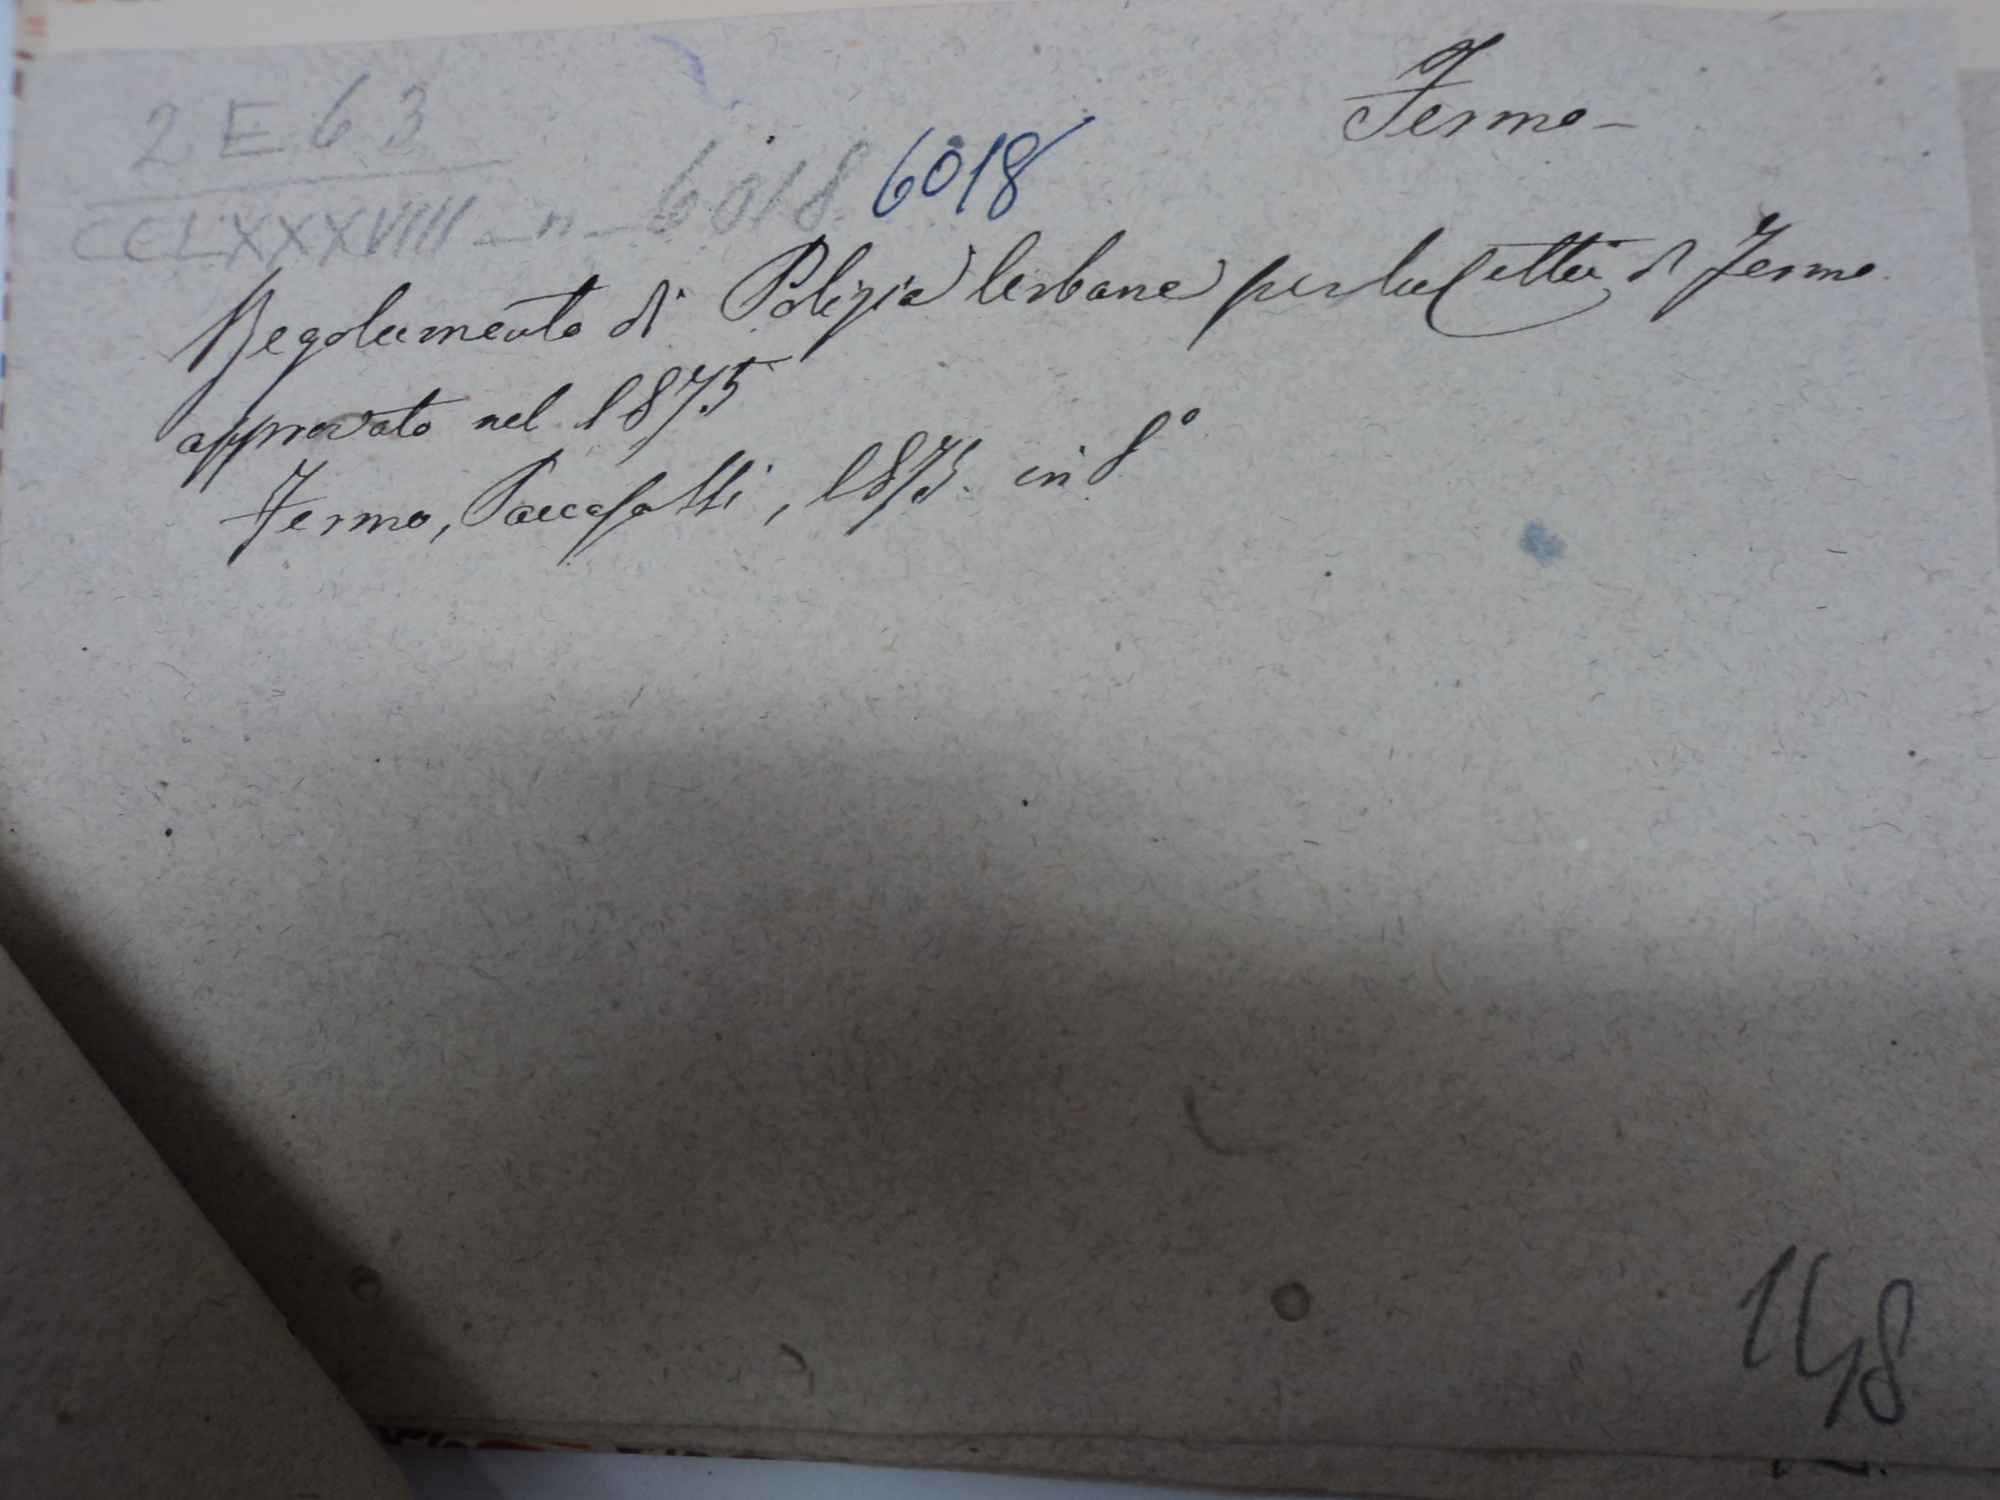 Fermo –
2 E 63
CCLXXXVIII – n – 6018 6018
Regolamento di Polizia Urbana per la Città di Fermo
approvato nel 1875
Fermo, Paccasassi, 1875. in 8°
148